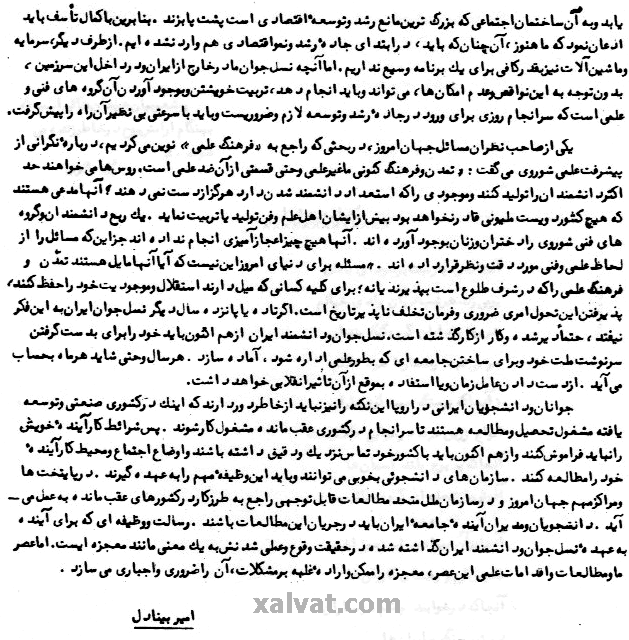 یابد و به آن ساختمان اجتماعی که بزرگ ترین مانع رشد و توسعهٔ اقتصادی است پشت پا بزند . بنابرین با کمال تأسف باید
اذعان نمود که ما هنوز ، آن چنان که باید ، در ابتدای جادهٔ رشد و نمو اقتصادی هم وارد نشده ایم . از طرف دیگر ، سرمایه
و ماشین آلات نیز بقدر کافی برای یک برنامه وسیع نداریم . اما آنچه نسل جوان ما در خارج از ایران و در داخل این سرزمین ،
بدون توجه به این نواقص و عدم امکان ها ، می تواند و باید انجام دهد ، تربیت خویشتن و بوجود آوردن آن گروه های فنی و
علمی است که سرانجام روزی برای ورود در جادهٔ رشد و توسعه لازم و ضروریست و باید با سرعتی بی نظیر آن راه را پیش گرفت .
یکی از صاحب نظران مسائل جهان امروز ، در بحثی که راجع به « فرهنگ علمی » نوین می کردیم ، در بارهٔ نگرانی از
پیشرفت علمی شوروی می گفت : « تمدن و فرهنگ کنونی ما غیر علمی و حتی قسمتی از آن ضد علمی است . روس ها می خواهند حد
اکثر دانشمندان را تولید کنند و موجودی را که استعداد دانشمند شدن دارد هرگز از دست نمی دهند ؟ آنها مدعی هستند
که هیچ کشور دویست ملیونی قادر نخواهد بود بیش از ایشان اهل علم و فن تولید یا تربیت نماید . یک ربع دانشمندان و گروه
های فنی شوروی را دختران و زنان بوجود آورده اند . آنها هیچ چیز اعجازآمیزی انجام نداده اند جز این که مسائل را از
لحاظ علمی و فنی مورد دقت و نظر قرار داده اند . » مسئله برای دنیای امروز این نیست که آیا آنها مایل هستند تمدن و
فرهنگ علمی را که در شرف طلوع است بپذیرند یا نه ؛ برای کلیه کسانی که میل دارند استقلال و موجودیت خود را حفظ کنند ،
پذیرفتن این تحول امری ضروری و فرمان تخلف ناپذیر تاریخ است . اگر تا ده یا پانزده سال دیگر نسل جوان ایران به این فکر
نیفتد ، حتماً دیر شده و کار از کار گذشته است . نسل جوان و دانشمند ایران از هم اکنون باید خود را برای بدست گرفتن
سرنوشت ملت خود و برای ساختن جامعه ای که بطور علمی اداره شود ، آماده سازد . هر سال و حتی شاید هر ماه بحساب
می آید . از دست دادن عامل زمان و یا استفاده بموقع از آن تاثیر انقلابی خواهد داشت .
جوانان و دانشجویان ایرانی در اروپا این نکته را نیز نباید از خاطر دور دارند که اینک در کشوری صنعتی و توسعه
یافته مشغول تحصیل و مطالعه هستند تا سرانجام در کشوری عقب مانده مشغول کار شوند . پس شرائط کار آیندهٔ خویش
را نباید فراموش کنند و از هم اکنون باید با کشور خود تماس نزدیک و دقیق داشته باشند و اوضاع اجتماع و محیط کار آیندهٔ
خود را مطالعه کنند . سازمان های دانشجوئی بخوبی می توانند و باید این وظیفهٔ مهم را به عهده گیرند . در پایتخت ها
و مراکز مهم جهان امروز و در سازمان ملل متحد مطالعات قابل توجهی راجع به طرز کار در کشورهای عقب مانده به عمل می -
آید . دانشجویان و مدیران آیندهٔ جامعهٔ ایران باید در جریان این مطالعات باشند . رسالت و وظیفه ای که برای آینده
به عهدهٔ نسل جوان و دانشمند ایران گذاشته شده در حقیقت وقوع و عملی شدنش به یک معنی مانند معجزه ایست . اما عصر
ما و مطالعات و اقدامات علمی این عصر ، معجزه را ممکن و ارادهٔ غلبه بر مشکلات ، آن را ضروری و اجباری می سازد .
امیر بیندادل
xalvat.com